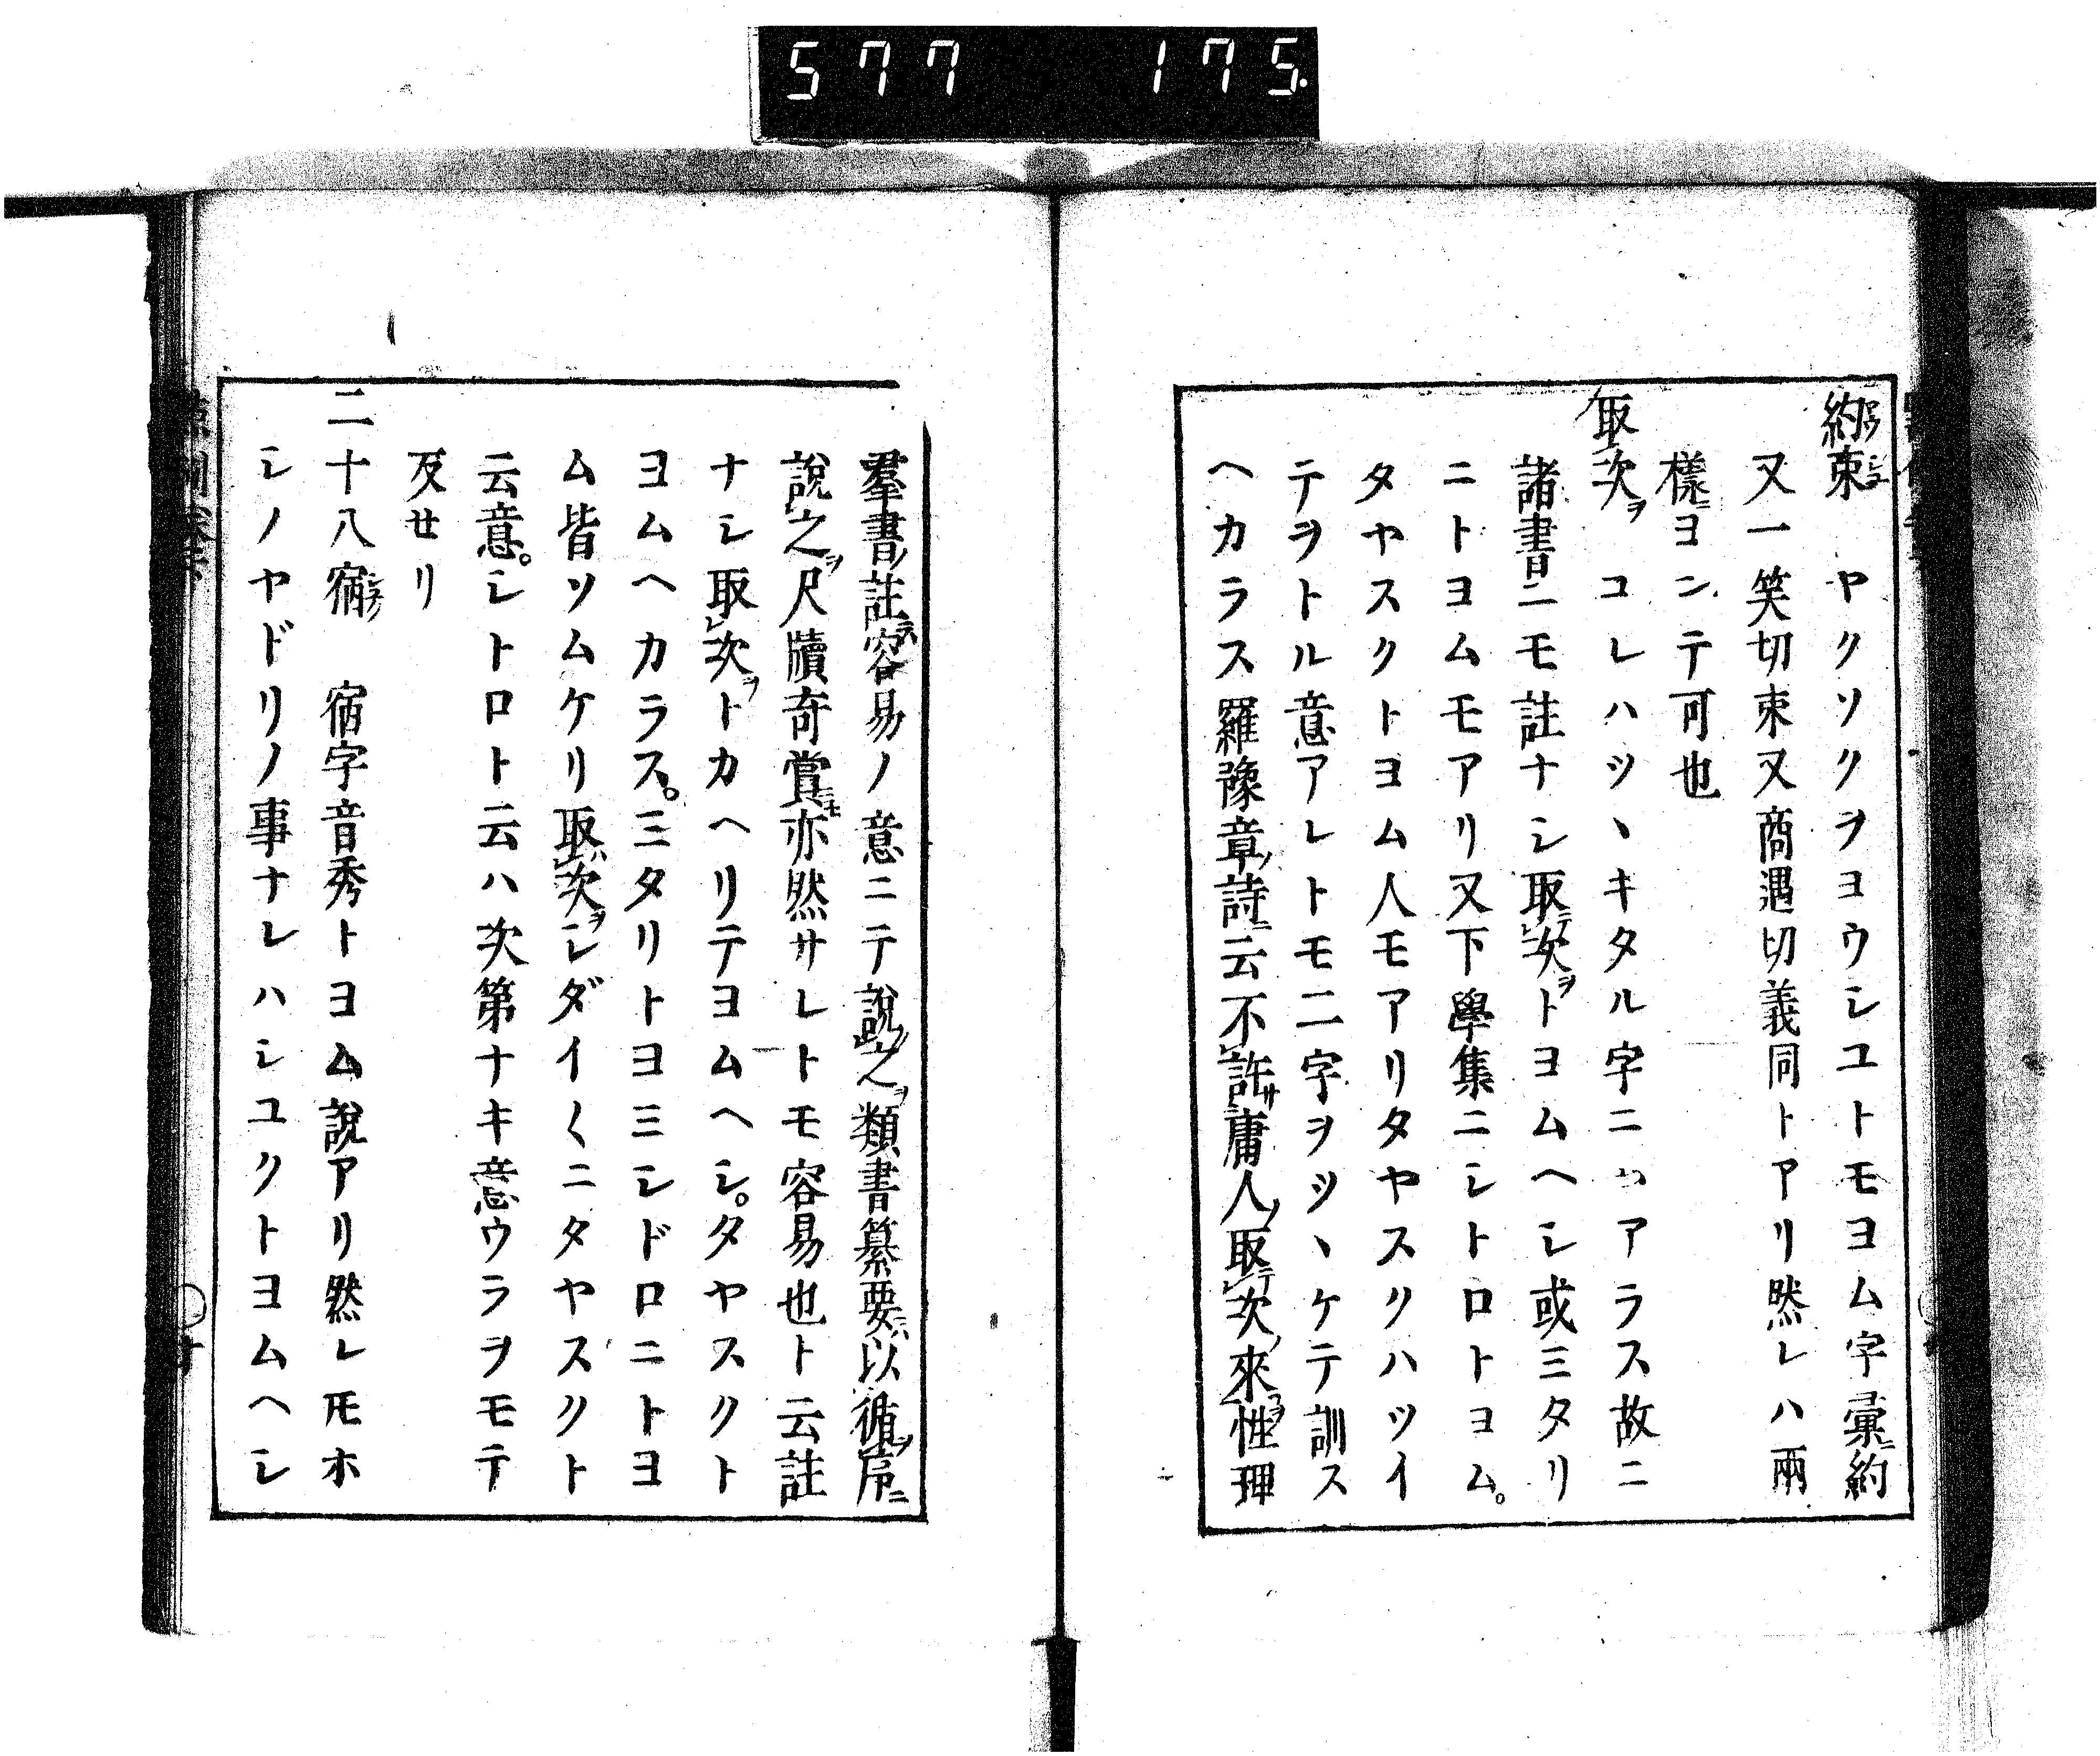 577 175.
約束 ヤクソクヲヨウシユトモヨム字彙ニ約
又一笑切束又商遇切義同トアリ然レハ兩
樣ニヨンテ可也
取次ヲ コレハツヽキタル字ニハアラス故ニ
諸書ニモ註ナシ取テ次ヲトヨムヘシ或ミタリ
ニトヨムモアリ又下學集ニシトロトヨム。
タヤスクトヨム人モアリタヤスクハツイ
テヲトル意アレトモ二字ヲツヽケテ訓ス
ヘカラス羅豫章ノ詩ニ云不許サ庸人ノ取テ次ノ來ヲ性理
羣書ノ註容易ノ意ニテ說之ヲ類書纂要ニハ以循序ニ
說之ヲ尺牘奇賞ニモ亦然サレトモ容易也ト云註
ナシ取レ次ヲトカヘリテヨムヘシ。タヤスクト
ヨムヘカラス。ミタリトヨミシドロニトヨ
ム皆ソムケリ取次ヲシダイ〱ニタヤスクト
云意。シトロト云ハ次第ナキ意ウラヲモテ
反セリ
二十八宿 宿字音秀トヨム說アリ然レ𪜈ホ
シノヤドリノ事ナレハシユクトヨムヘシ